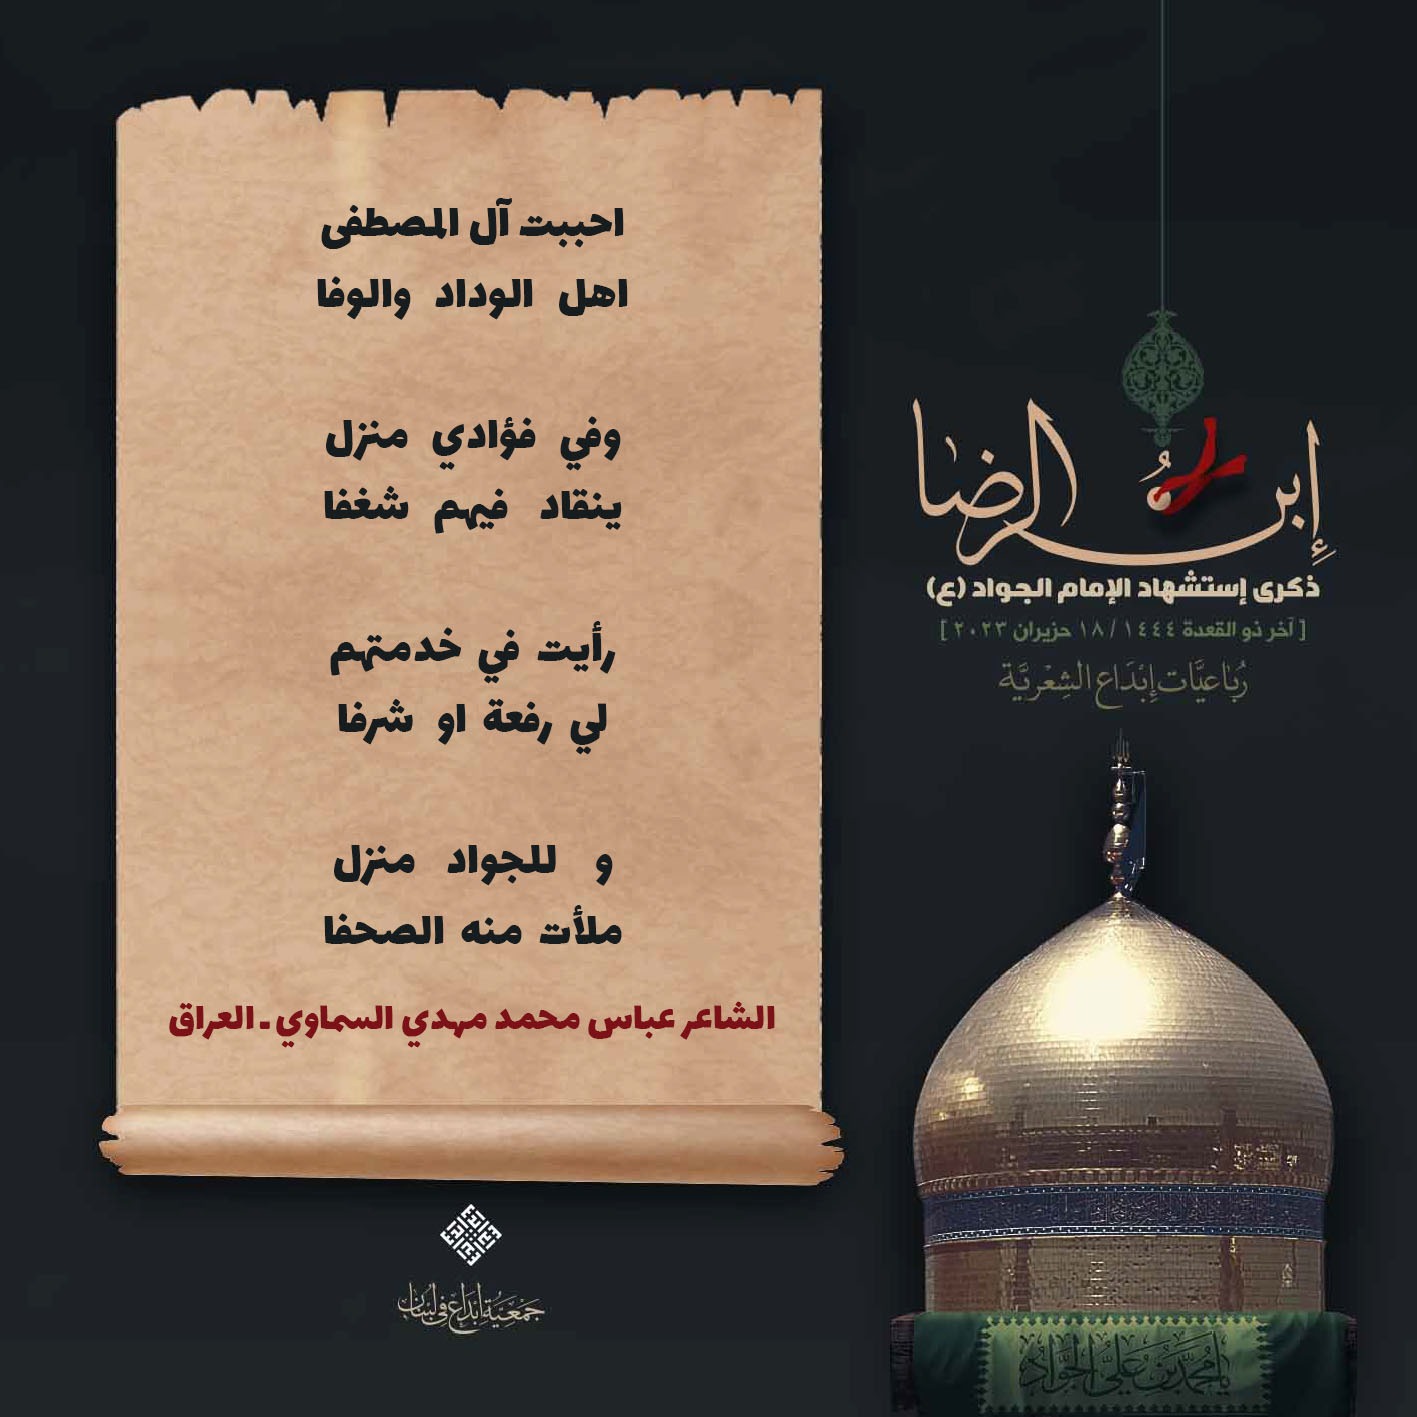 احببت آل المصطفى
اهل الوداد والوفا
وفي فؤادي منزل
ينقاد فيهم شغفا
رأيت في خدمتهم
لي رفعة او شرفا
و للجواد منزل
ملأت منه الصحفا
الشاعر عباس محمد مهدي السماوي ـ العراق
إبن الرضا
ذكرى إستشهاد الإمام الجواد (ع)
[ آخر ذو القعدة ١٤٤٤ / ١٨ حزيران ٢٠٢٣ ]
رُبَاعيَّات إِبْدَاع الشِعْريَّة
يا مُحَمَّدُ بْنَ عَلِيٍّ الجَوَادُ
جَمْعِيَّة إبْدَاع في لبنان